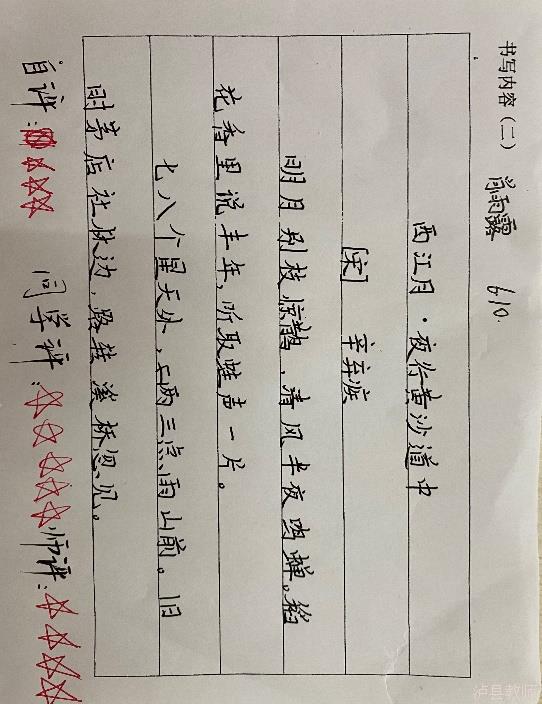 书写内容(二) 肖雨露 610.
西江月·夜行黄沙道中
[宋] 辛弃疾
明月别枝惊鹊,清风半夜鸣蝉。稻
花香里说丰年,听取蛙声一片。
七八个星天外,两三点雨山前。旧
时茅店社林边,路转溪桥忽见。
自评: 同学评: 师评:
泸县教师